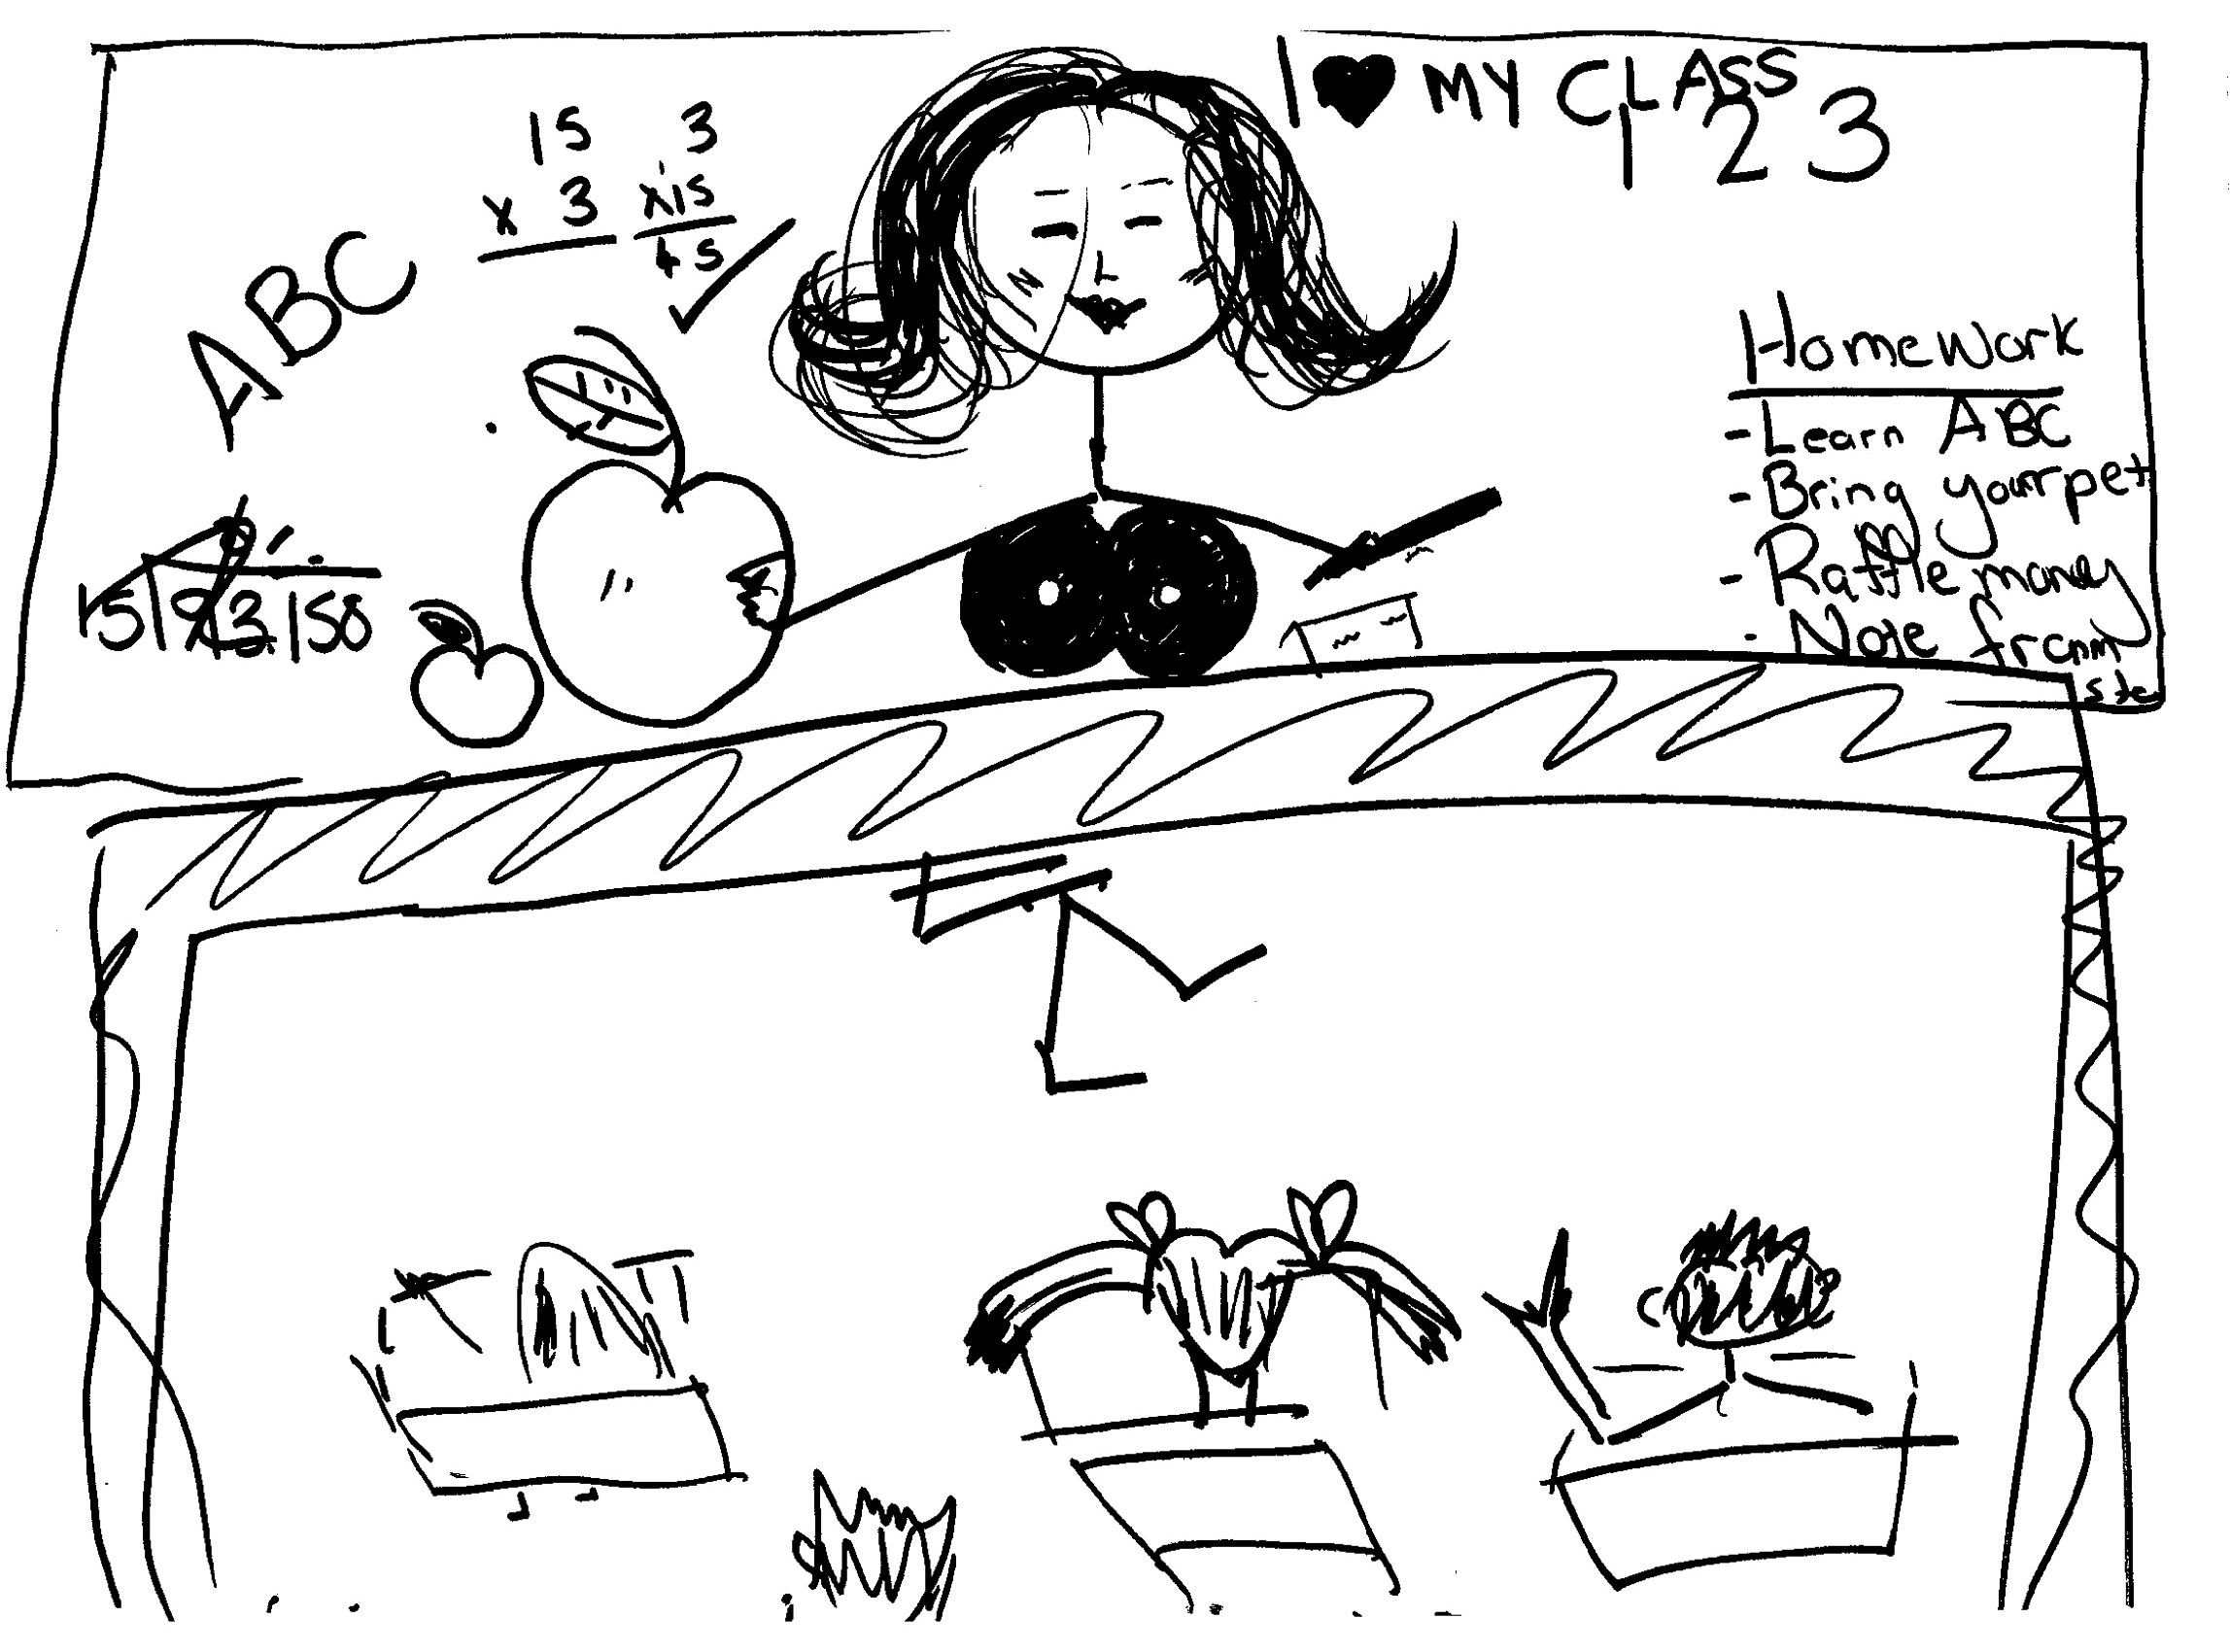 I ♥ MY CLASS
1 2 3
15
x 3
3
x 15
45
ABC
HomeWork
- Learn ABC
- Bring your pet
- Raffle money
- Note from
15